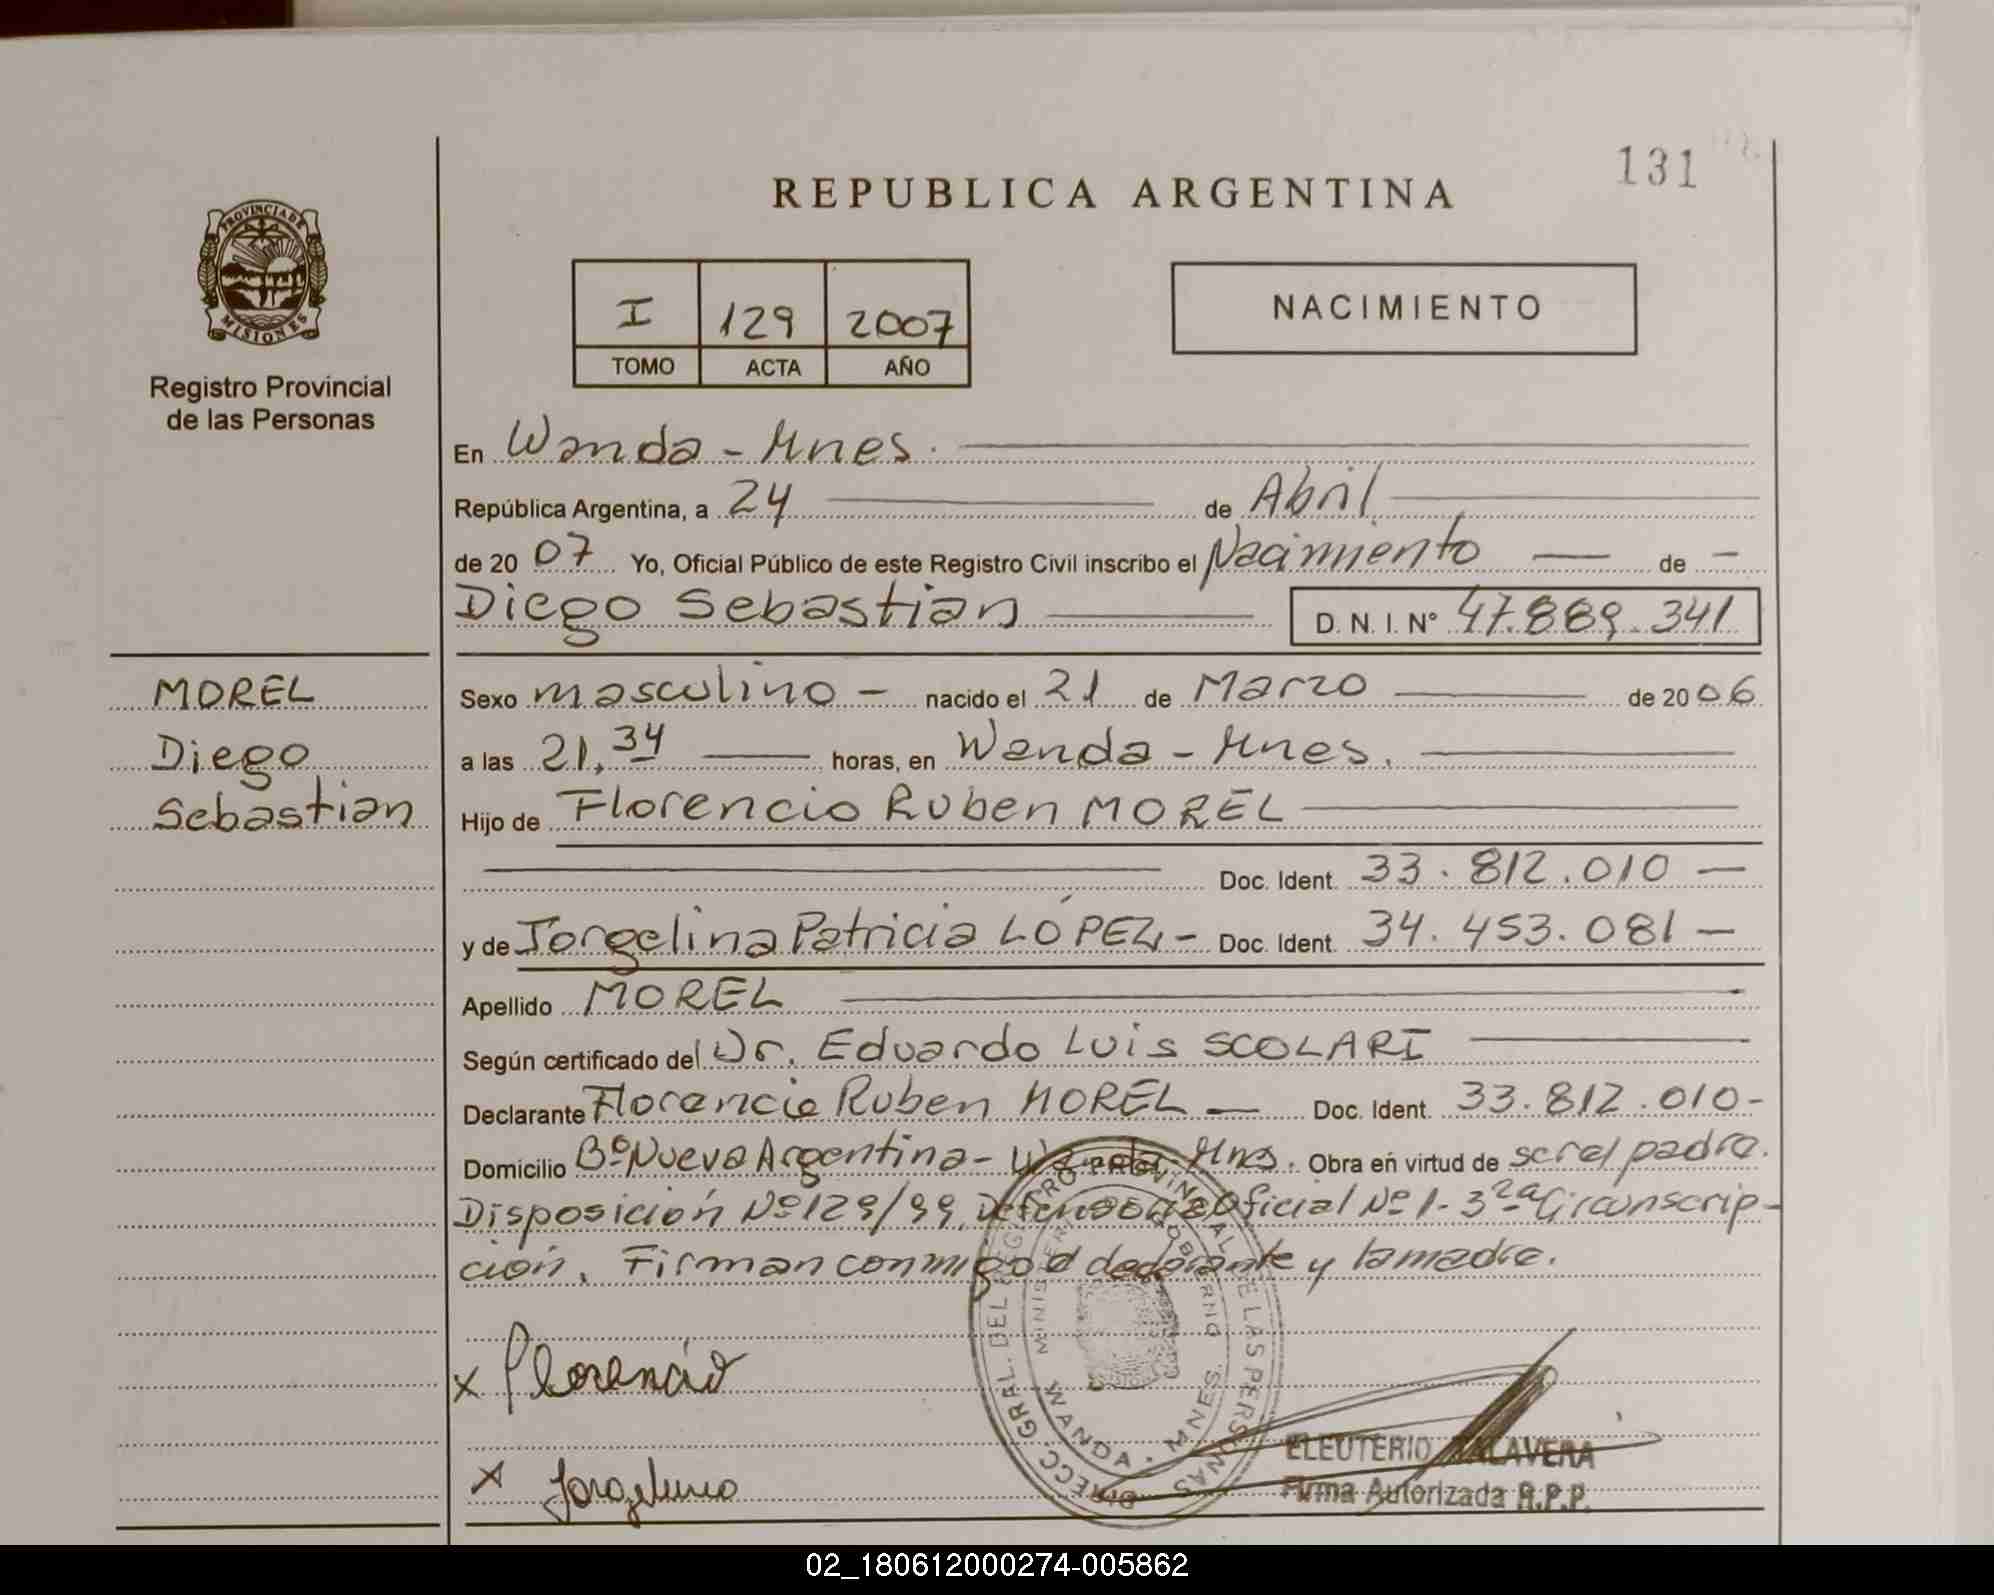 131
REPUBLICA ARGENTINA
PROVINCIA DE MISIONES
Registro Provincial
de las Personas
I 129 2007
TOMO ACTA AÑO
NACIMIENTO
En Wanda - Mnes.
República Argentina, a 24 de Abril
de 2007 Yo, Oficial Público de este Registro Civil inscribo el Nacimiento de
Diego Sebastian D. N. I. N° 47.889.341
MOREL
Diego
Sebastian
Sexo masculino - nacido el 21 de Marzo de 2006
a las 21,34 horas, en Wanda - Mnes.
Hijo de Florencio Ruben MOREL
Doc. Ident. 33.812.010 -
y de Jorgelina Patricia LÓPEZ - Doc. Ident. 34.453.081 -
Apellido MOREL
Según certificado del Dr. Eduardo Luis SCOLARI
Declarante Florencio Ruben MOREL - Doc. Ident. 33.812.010-
Domicilio Bº Nueva Argentina - Wanda, Mnes. Obra en virtud de ser el padre.
Disposición Nº 129/99, Defensoria Oficial Nº 1 - 3ra Circunscrip-
ción. Firman conmigo el declarante y la madre.
x Florencio
x Jorgelina
DIRECC. GRAL. DEL REGISTRO PROVINCIAL DE LAS PERSONAS
MINISTERIO GOBIERNO
WANDA - MNES.
ELEUTERIO TALAVERA
Firma Autorizada R.P.P.
02_180612000274-005862